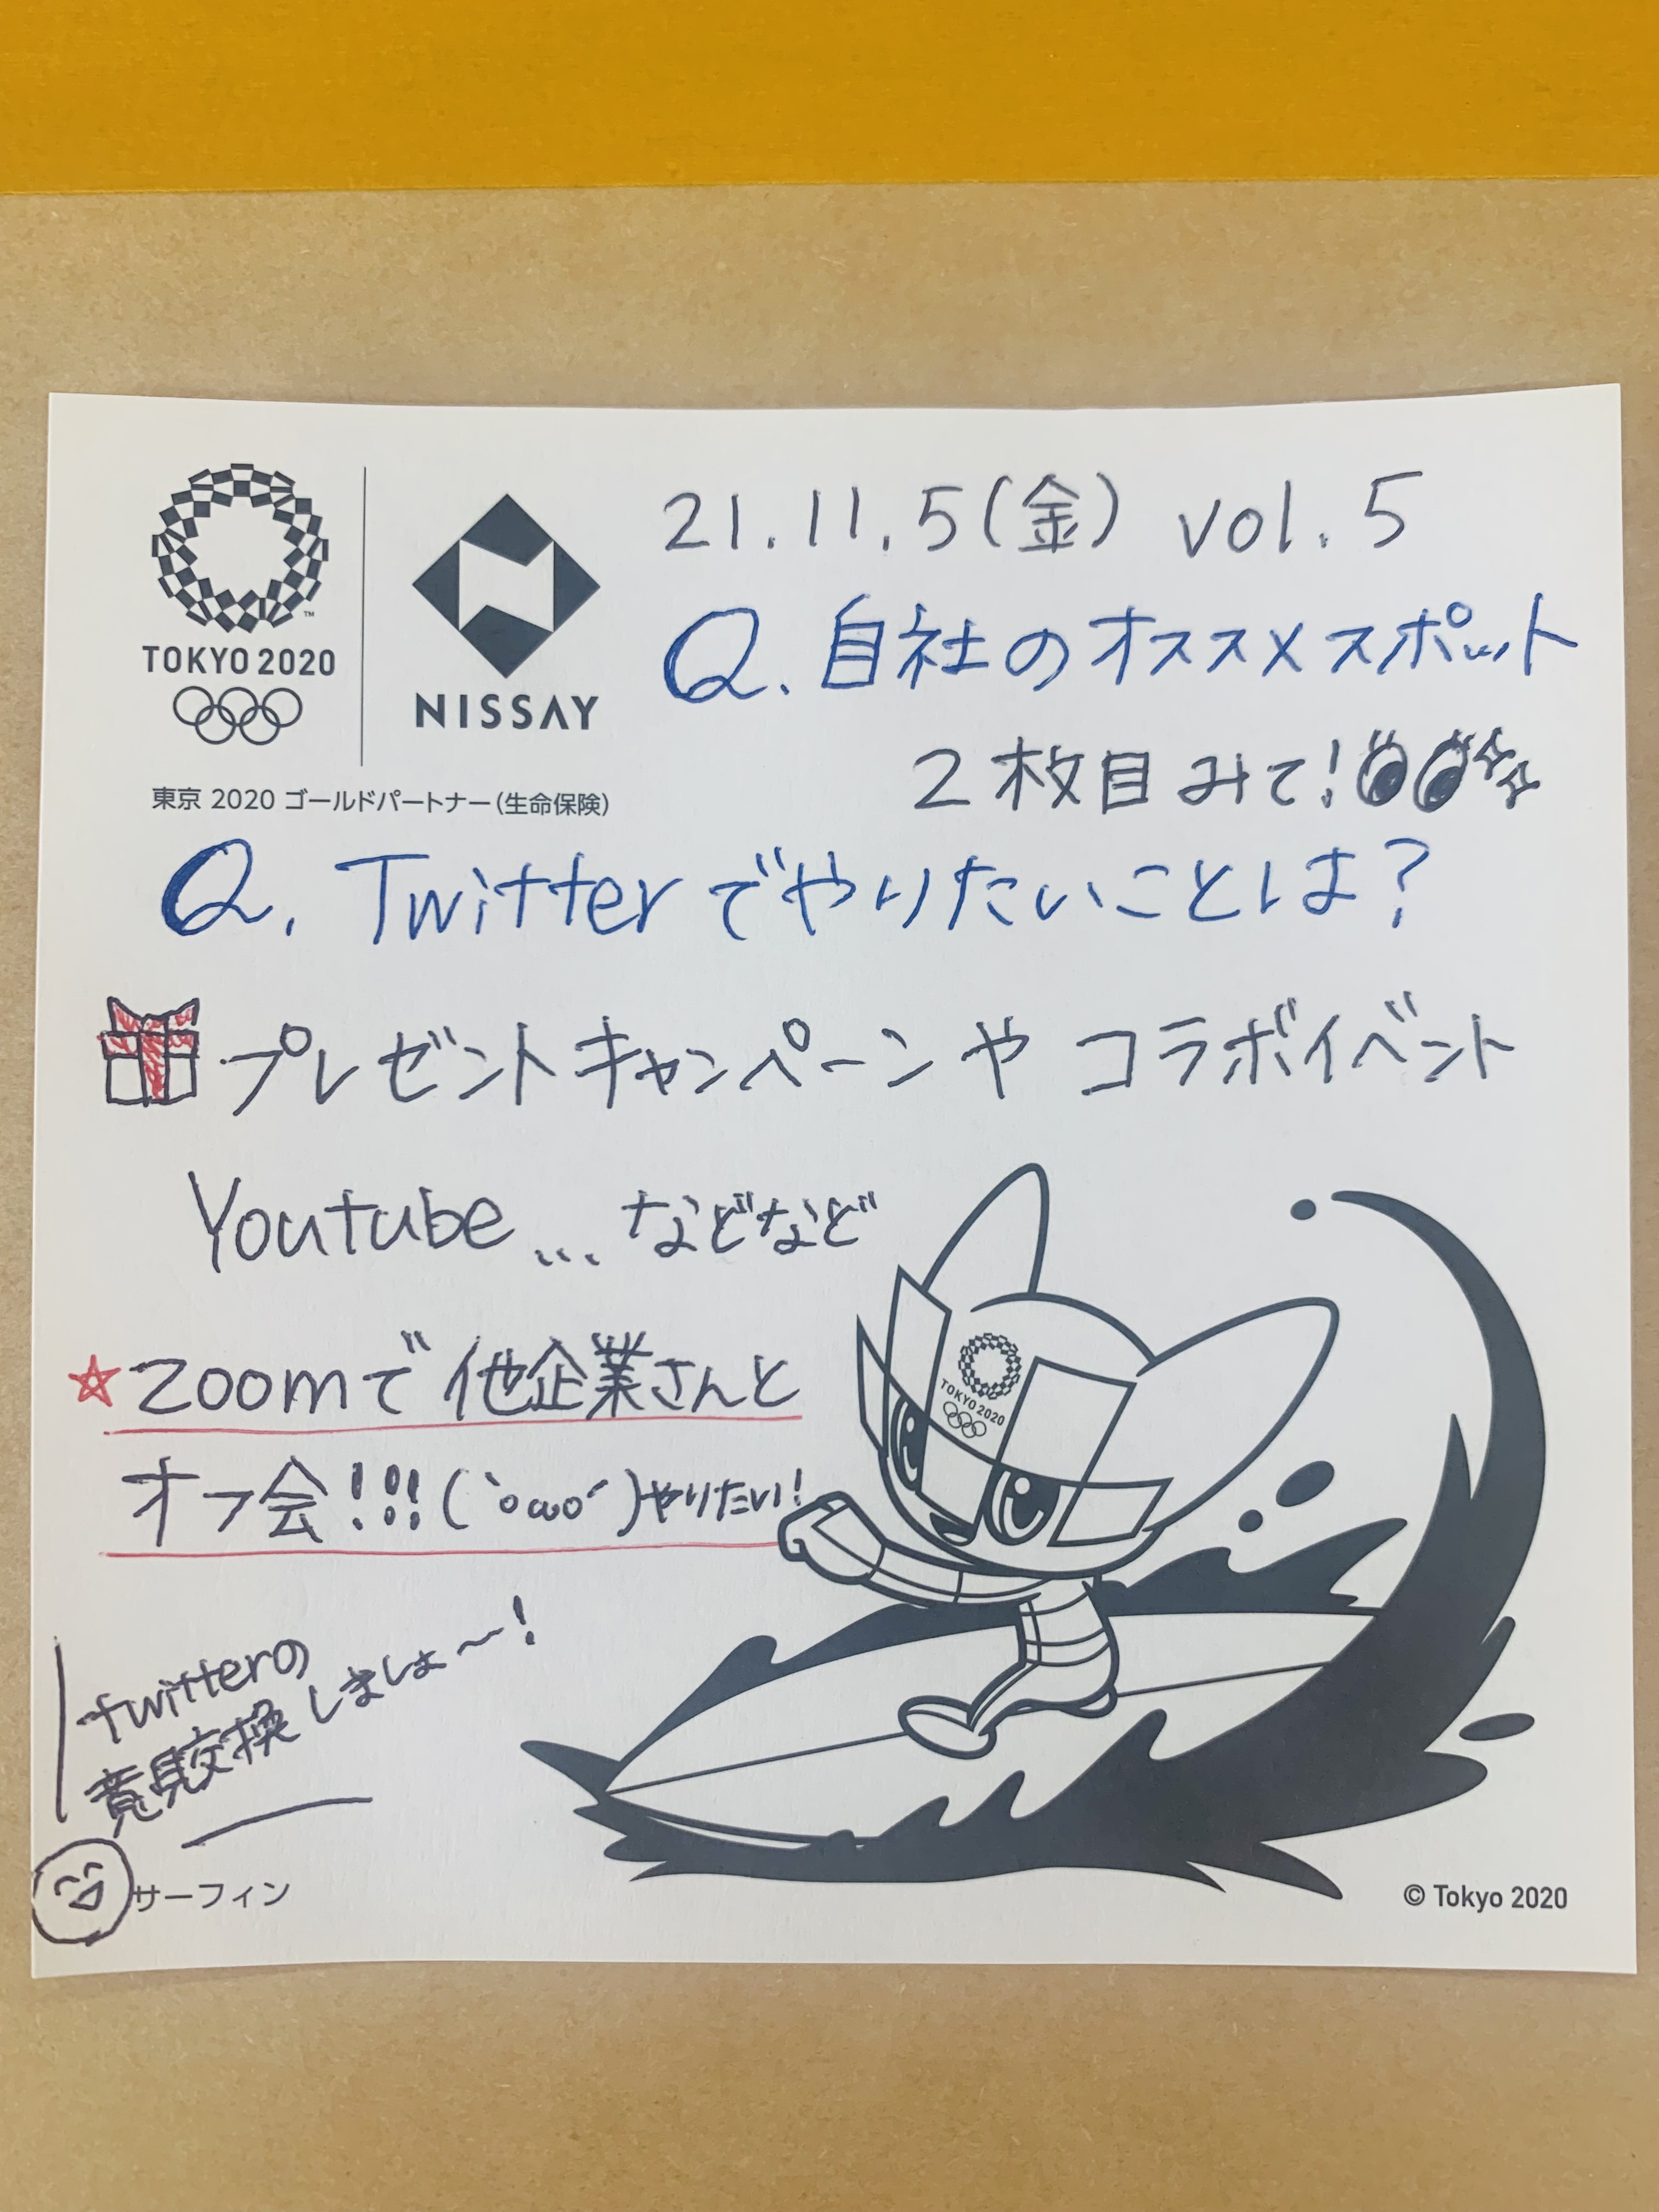 TOKYO 2020
NISSAY
東京 2020 ゴールドパートナー(生命保険)
21.11.5(金) vol.5
Q.自社のオススメスポット
2枚目みて!
Q.Twitterでやりたいことは?
プレゼントキャンペーンや コラボイベント
Youtube...などなど
☆Zoomで他企業さんと
オフ会!!!(`oωo´)やりたい!
TOKYO 2020
twitterの
意見交換しましょ〜!
サーフィン
© Tokyo 2020